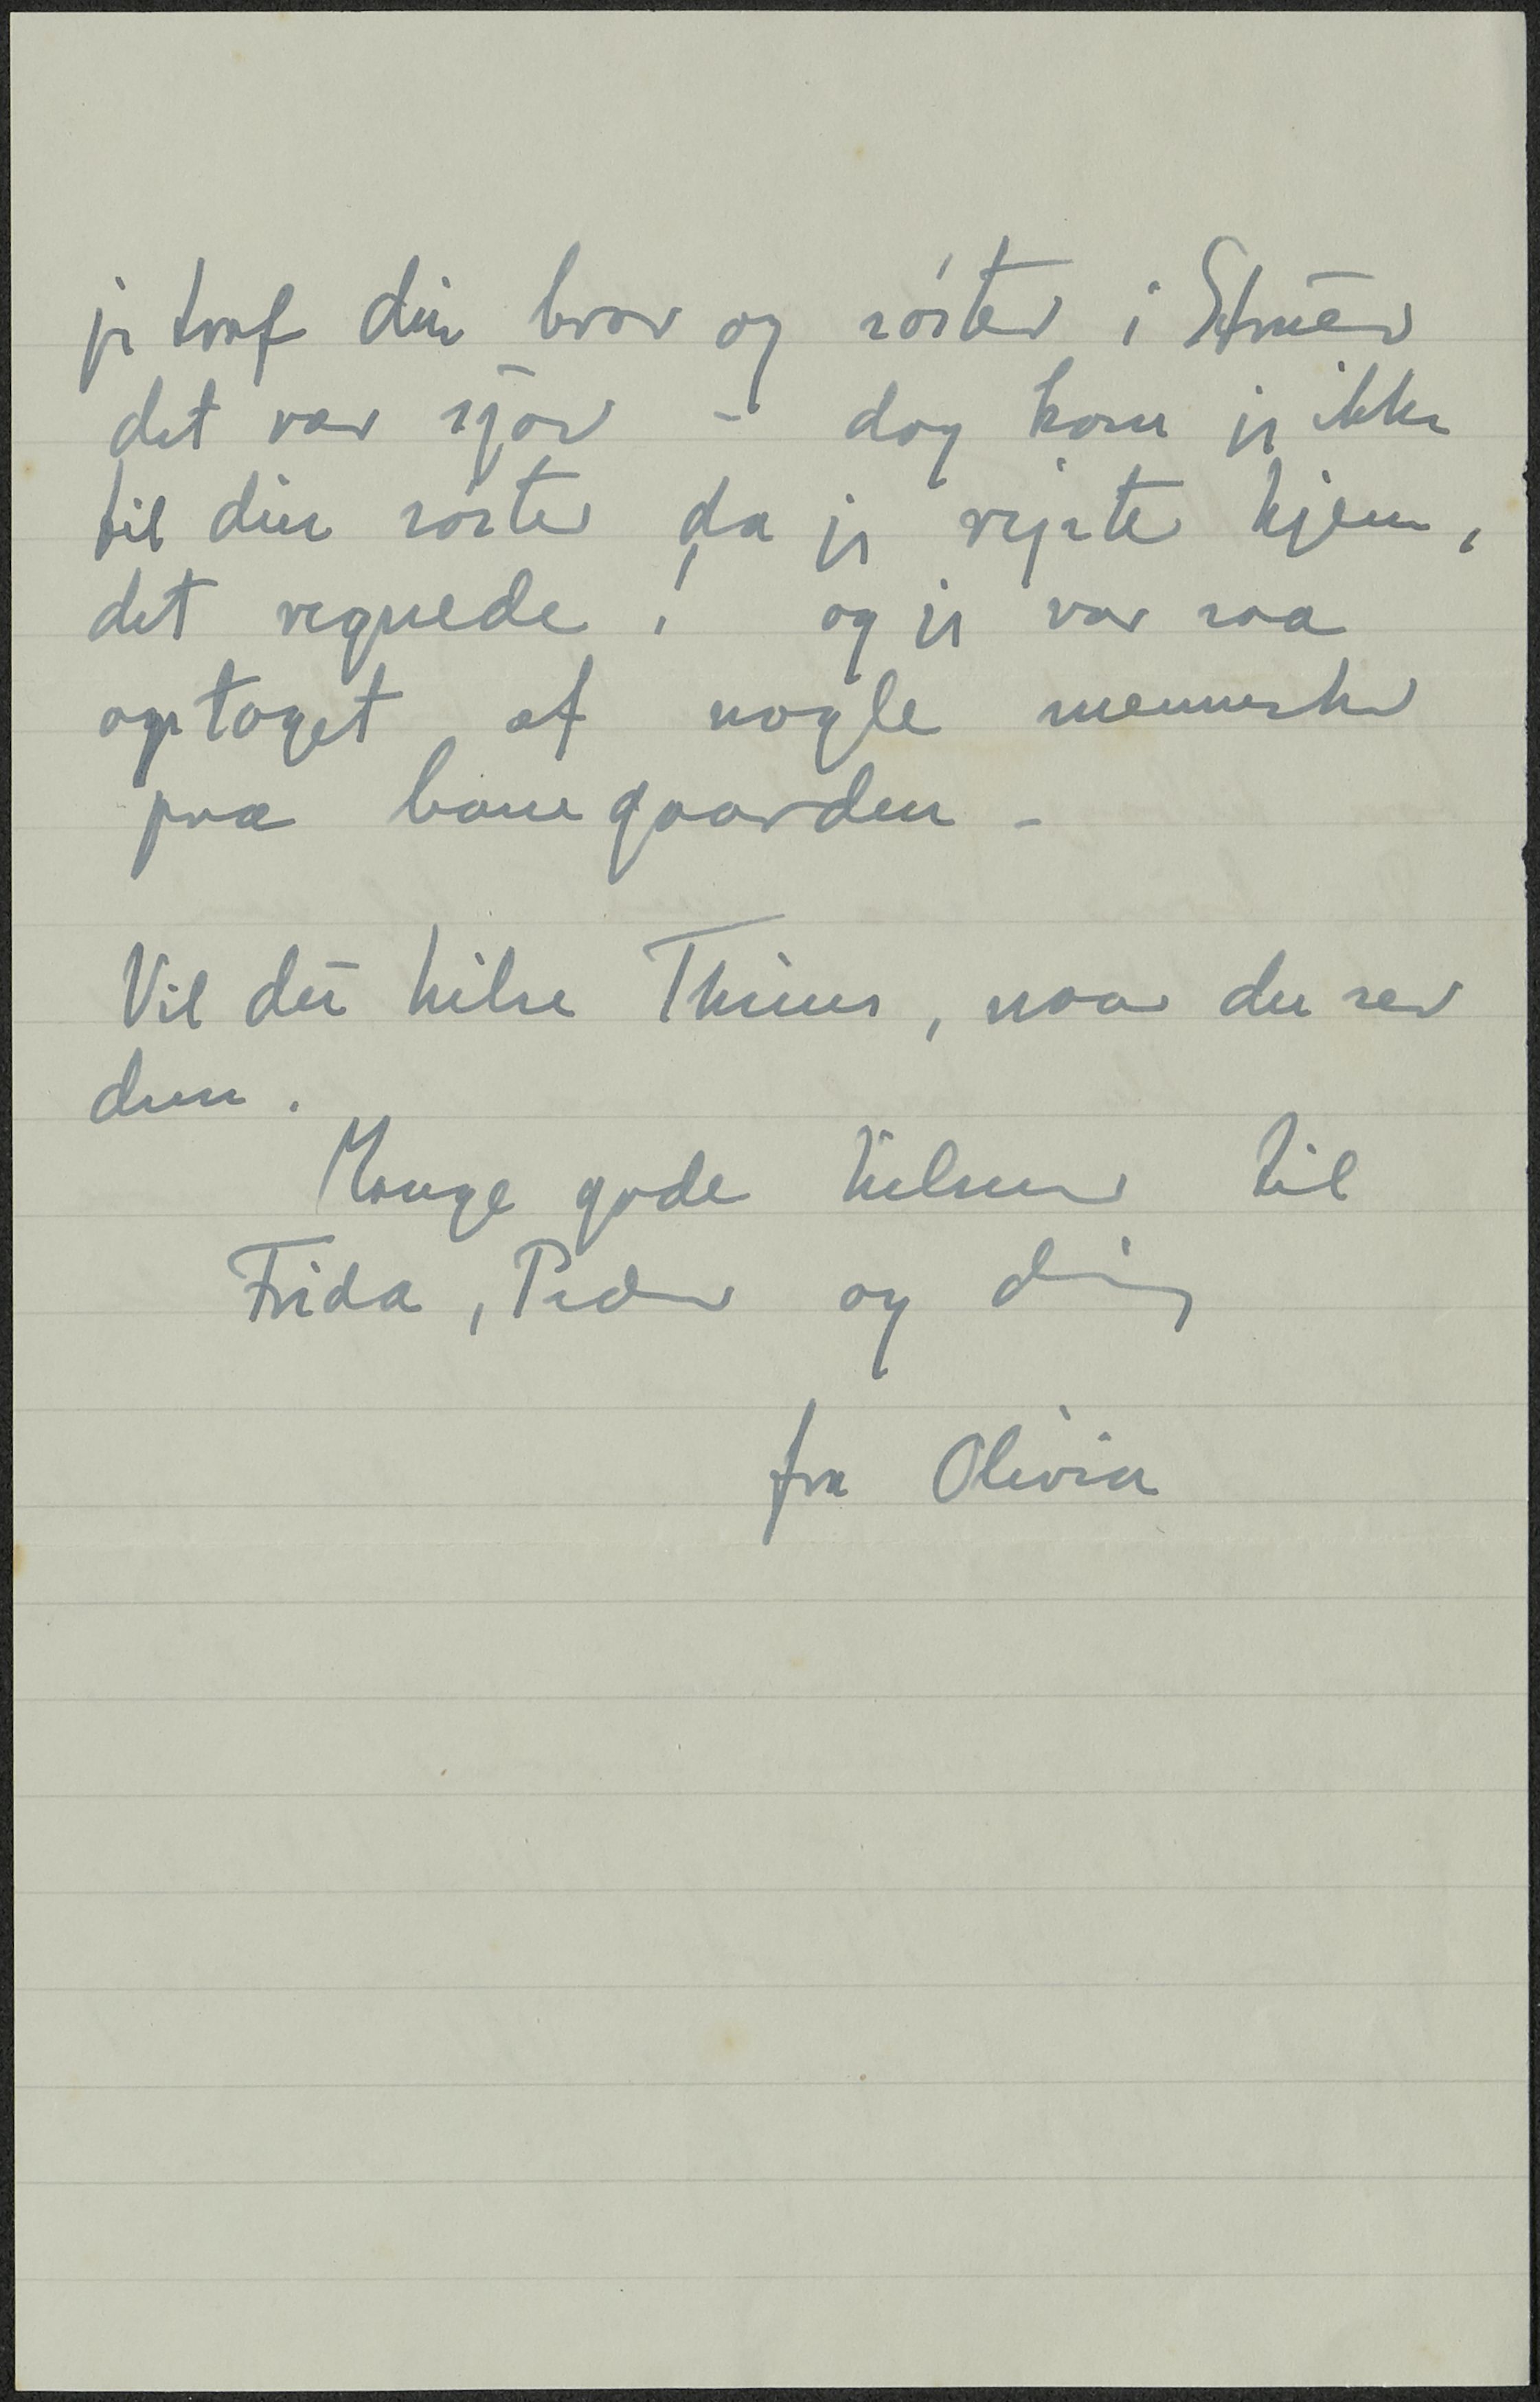 jeg traf din bror og söster i Struer
det var sjov - dog kom jeg ikke
til din söster da jeg rejste hjem,
det regnede! og jeg var saa
optaget af nogle mennesker
paa banegaarden -
Vil du hilse Thines, naar du ser
dem.
Mange gode hilsner til
Frida, Peder og dig
fra Olivia